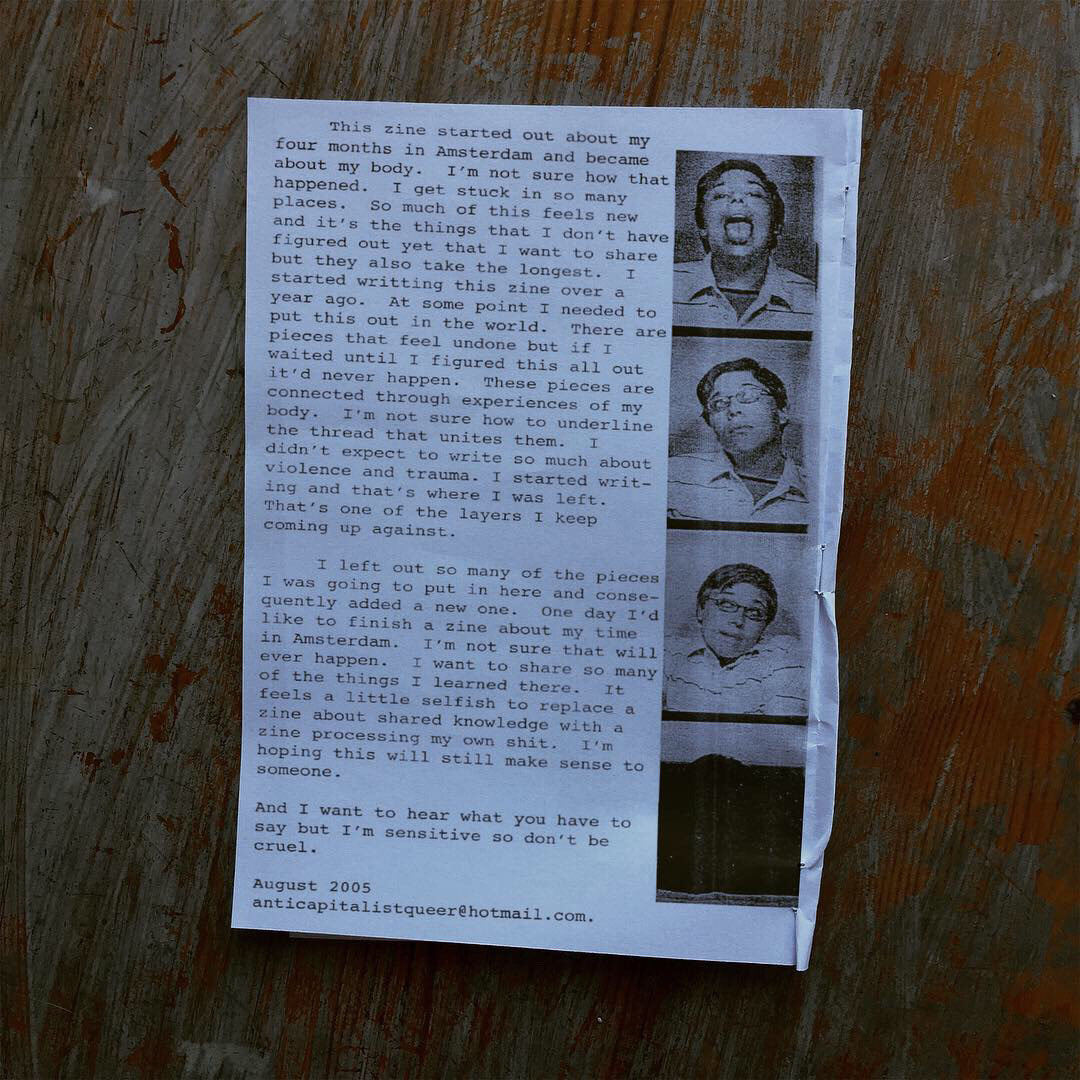 This zine started out about my
four months in Amsterdam and became
about my body. I'm not sure how that
happened. I get stuck in so many
places. So much of this feels new
and it's the things that I don't have
figured out yet that I want to share
but they also take the longest. I
started writting this zine over a
year ago. At some point I needed to
put this out in the world. There are
pieces that feel undone but if I
waited until I figured this all out
it'd never happen. These pieces are
connected through experiences of my
body. I'm not sure how to underline
the thread that unites them. I
didn't expect to write so much about
violence and trauma. I started writ-
ing and that's where I was left.
That's one of the layers I keep
coming up against.
I left out so many of the pieces
I was going to put in here and conse-
quently added a new one. One day I'd
like to finish a zine about my time
in Amsterdam. I'm not sure that will
ever happen. I want to share so many
of the things I learned there. It
feels a little selfish to replace a
zine about shared knowledge with a
zine processing my own shit. I'm
hoping this will still make sense to
someone.
And I want to hear what you have to
say but I'm sensitive so don't be
cruel.
August 2005
anticapitalistqueer@hotmail.com.